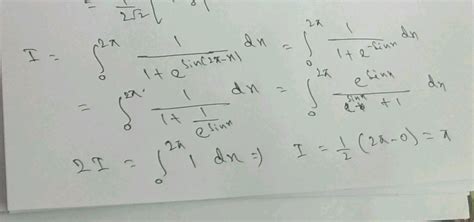 = 1/(2√2) [
I = ∫₀^{2π} 1/(1 + e^{sin(2π-x)}) dx = ∫₀^{2π} 1/(1 + e^{-sinx}) dx
= ∫₀^{2π} 1/(1 + 1/e^{sinx}) dx = ∫₀^{2π} e^{sinx}/(e^{sinx} + 1) dx
2I = ∫₀^{2π} 1 dx => I = 1/2 (2π-0) = π